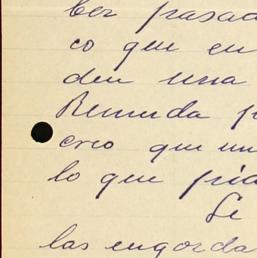 ber pasad
co que en
den una
Remuda p
creo que un
lo que pia
Le
las engorda